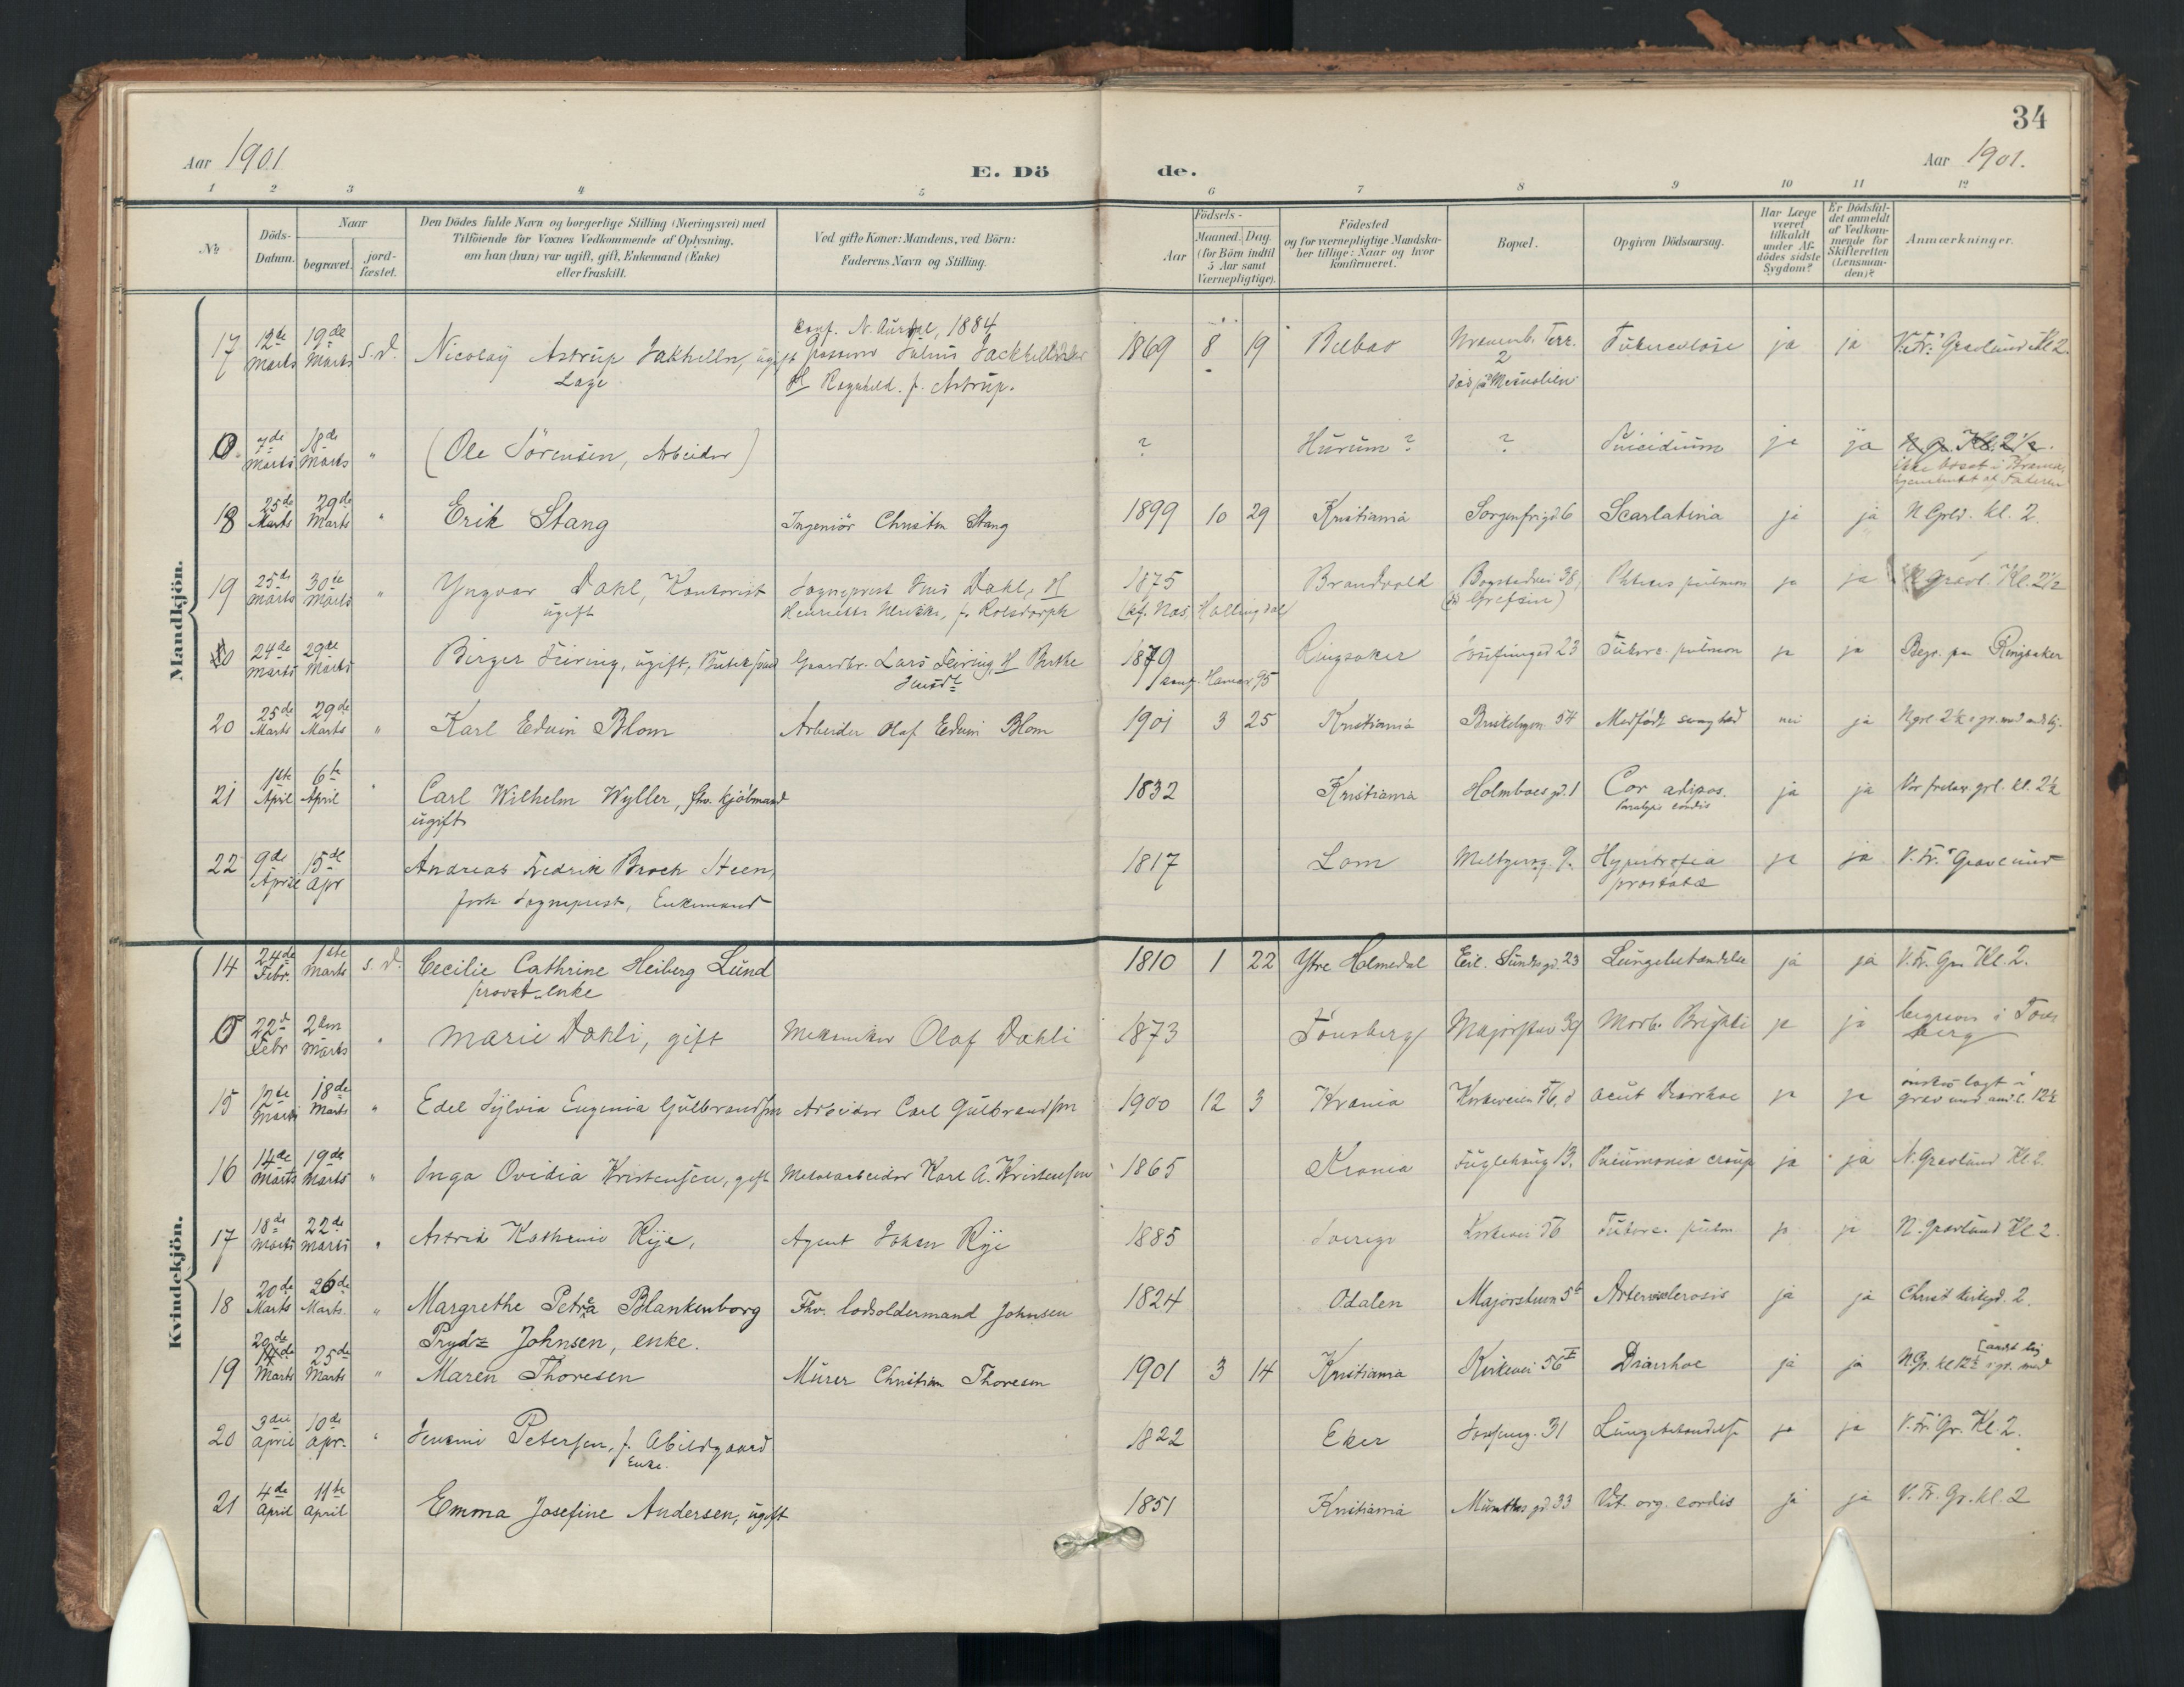 34
Aar 1901
E. Dö
de.
Aar 1901.
1 2 3 4 5 6 7 8 9 10 11 12
№
Döds-
Datum.
Naar
begravet.
jord-
fæstet.
Den Dödes fulde Navn og borgerlige Stilling (Næringsvei) med
Tilföiende for Voxnes Vedkommende af Oplysning,
om han (hun) var ugift, gift, Enkemand (Enke)
eller fraskilt.
Ved gifte Koner: Mandens, ved Börn:
Faderens Navn og Stilling.
Födsels-
Aar
Maaned. Dag.
(for Börn indtil
5 Aar samt
Værnepligtige).
Födested
og for værnepligtige Mandska-
ber tillige: Naar og hvor
konfirmeret.
Bopæl.
Opgiven Dödsaarsag.
Har Læge
været
tilkaldt
under Af-
dödes sidste
Sygdom?
Er Dödsfal-
det anmeldt
af Vedkom-
mende for
Skifteretten
(Lensman-
den)?
Anmærkninger.
Mandkjön.
17 12de Marts 19de Marts s.d. Nicolay Astrup Jakhelln, ugift
Læge
conf. N. Aurdal, 1884
Julius
Ragnhild f. Astrup.
1869 8 19 Bilbao Terr. 2
Tuberculose ja ja V. Fr. Gravlund Kl 2.
0 7de Marts 18de Marts " (Ole Sörensen, Arbeider) ? Hurum? ? Suicidium ja ja
18 25de Marts 29de Marts " Erik Stang Ingeniör Christen Stang 1899 10 29 Kristiania Sorgenfrigd. 6 Scarlatina ja ja N Grld. kl. 2.
19 25de Marts 30te Marts " Yngvar Dahl, Kontorist
ugift
Sogneprest Dahl, H
Henriette
1875
Hallingdal
Brandvold Bogstadvei 38
Grefsen)
Phthisis pulmon ja ja N Gravl. Kl. 2½
24de Marts 29de Marts Birger Feiring, ugift, Gaardbr. Lars Feiring, H
1879
conf. Hamar 95
Ringsaker 23 Tuberc. pulmon ja ja Begr. paa Ringsaker
20 25de Marts 29de Marts " Karl Edvin Blom Arbeider Olaf Edvin Blom 1901 3 25 Kristiania Briskebyvn. 54 Medfödt svaghed nei ja
21 1ste April 6te April " Carl Wilhelm Wyller, fhv. kjöbmand
ugift
1832 Kristiania Holmboes gd. 1 Cor adipos.
Paralysis cordis
ja ja Vor frelser. grl. kl. 2½
22 9de April 15de Apr Andreas Fredrik Broch Steen,
forh. Sogneprest, Enkemand
1817 Lom Meltzersg. 9. Hypertrofia
prostatæ
ja ja V. Fr. Gravlund
Kvindekjön.
14 24de Febr. 1ste Marts s. d. Cecilie Cathrine Heiberg Lund
provst-enke
1810 1 22 Ytre Holmedal Eil. Sundtsgd. 23 Lungebetændelse ja ja V. Fr. Gr. Kl. 2.
0 22d Febr 2den Marts " Marie Dahli, gift Mekaniker Olaf Dahli 1873 Tönsberg Majorstuv 39 Morb. Brightii ja ja begraves i Töns
berg
15 12te Marts 18de Marts " Edel Sylvia Eugenia Gulbrandsen Arbeider Carl Gulbrandsen 1900 12 3 Krania Kirkeveien 56, acut Diarrhoe ja ja ønskes lagt i
grav med 12½
16 14de Marts 19de Marts " Inga Ovidia Kristensen, gift Metalarbeider Karl A. Kristensen 1865 Krania Fuglehaug 13. Pneumonia croup ja ja N. Gravlund Kl. 2.
17 18de Marts 22de Marts " Astrid Kathrine Rye, Agent Johan Rye 1885 Sverige Kirkevei 56 Tuberc. pulm ja ja N. Gravlund Kl 2.
18 20de Marts 26de Marts. " Margrethe Petrea Blankenborg
Prydz Johnsen, enke.
Fhv. lodsoldermand Johnsen 1824 Odalen Majorstuvn 5 Arteriosclerosis ja ja Christ kirkegd. 2.
19 20de Marts 25de Marts " Maren Thoresen Murer Christian Thoresen 1901 3 14 Kristiania Kirkevei 56 Diarrhoe ja ja N.Gr. kl 12½ i gr. med
andet lig
20 3die April 10de Apr. " Petersen, f. Abildgaard
Enke.
1822 Eker 31 Lungebetændelse ja ja V. Fr. Gr. Kl. 2.
21 4de April 11te April Emma Josefine Andersen, ugift 1851 Kristiania Munthes gd 33 Vit. org. cordis ja ja V. Fr. Gr. kl. 2